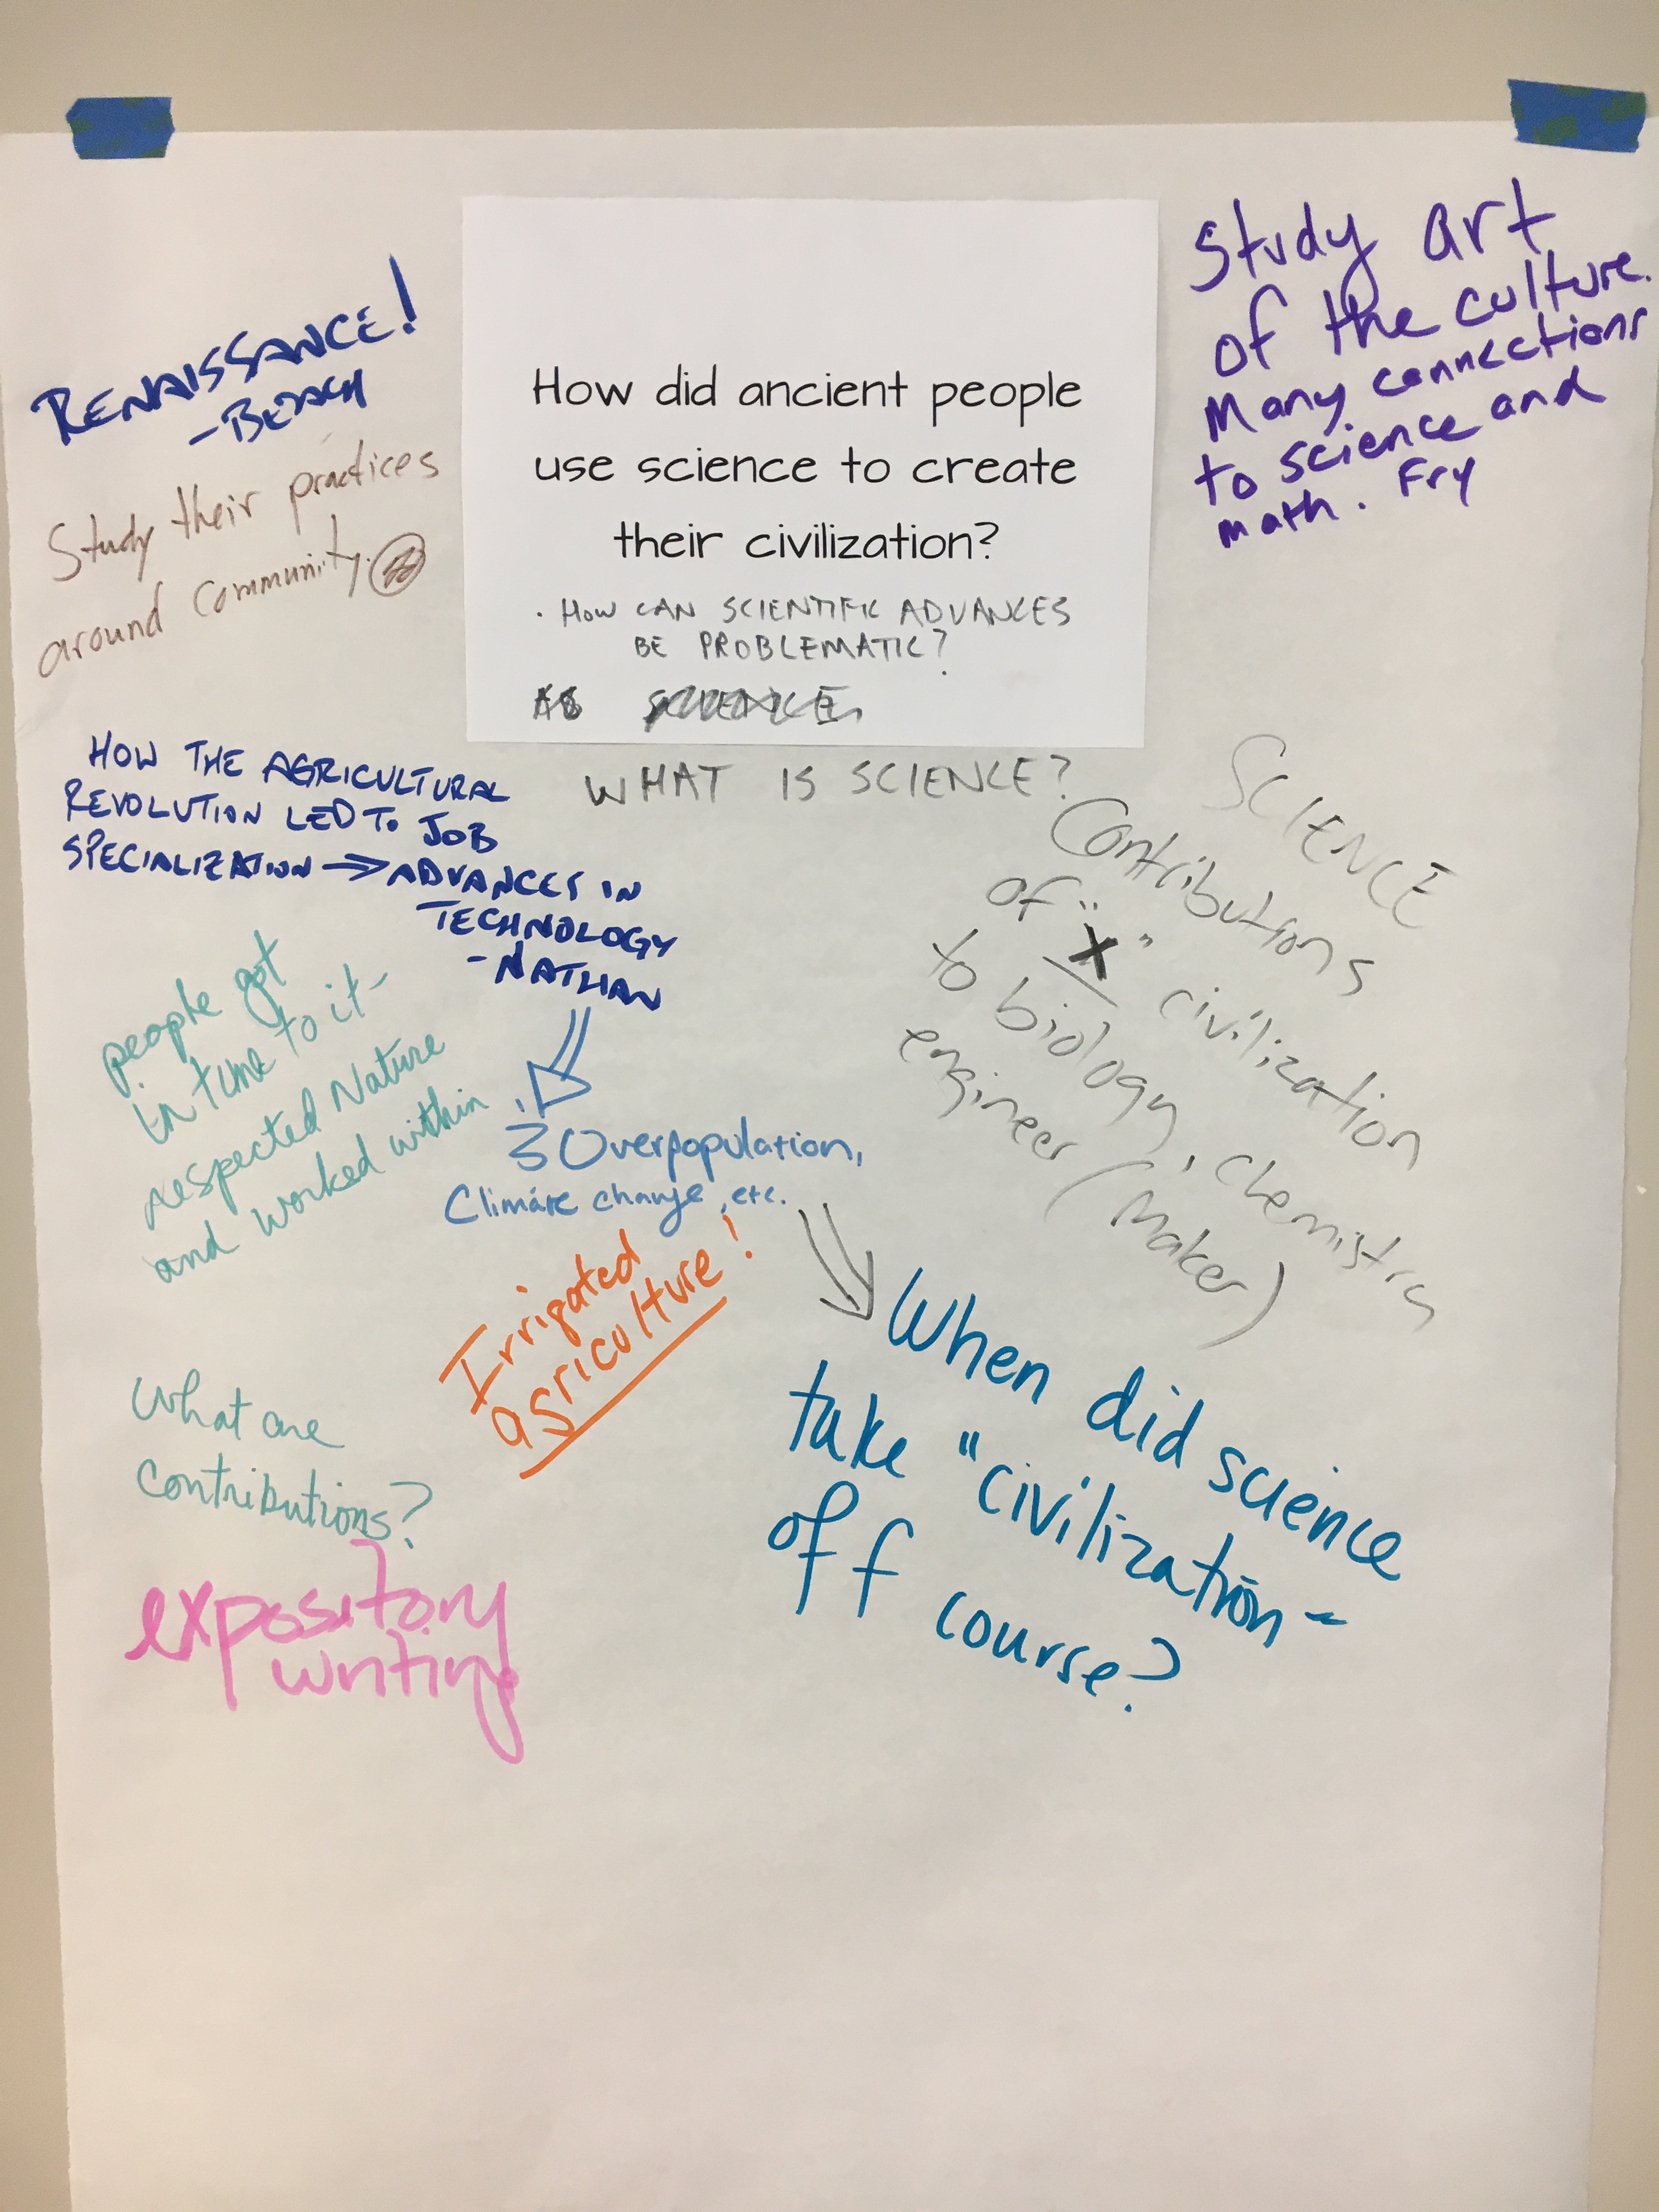 How did ancient people
use science to create
their civilization?
· HOW CAN SCIENTIFIC ADVANCES
BE PROBLEMATIC?
WHAT IS SCIENCE?
RENAISSANCE!
Study their practices
around community.
Study art
of the culture.
Many connections
to science and
math. Fry
HOW THE AGRICULTURAL
REVOLUTION LED TO JOB
SPECIALIZATION → ADVANCES IN
TECHNOLOGY
- NATHAN
people got
in time to it-
respected Nature
and worked within
Overpopulation,
Climate change, etc.
Irrigated
agriculture!
SCIENCE
Contributions
of "X" civilization
to biology, chemistry
engineer (Maker)
When did science
take "civilization-
off course?
What are
contributions?
expository
writing